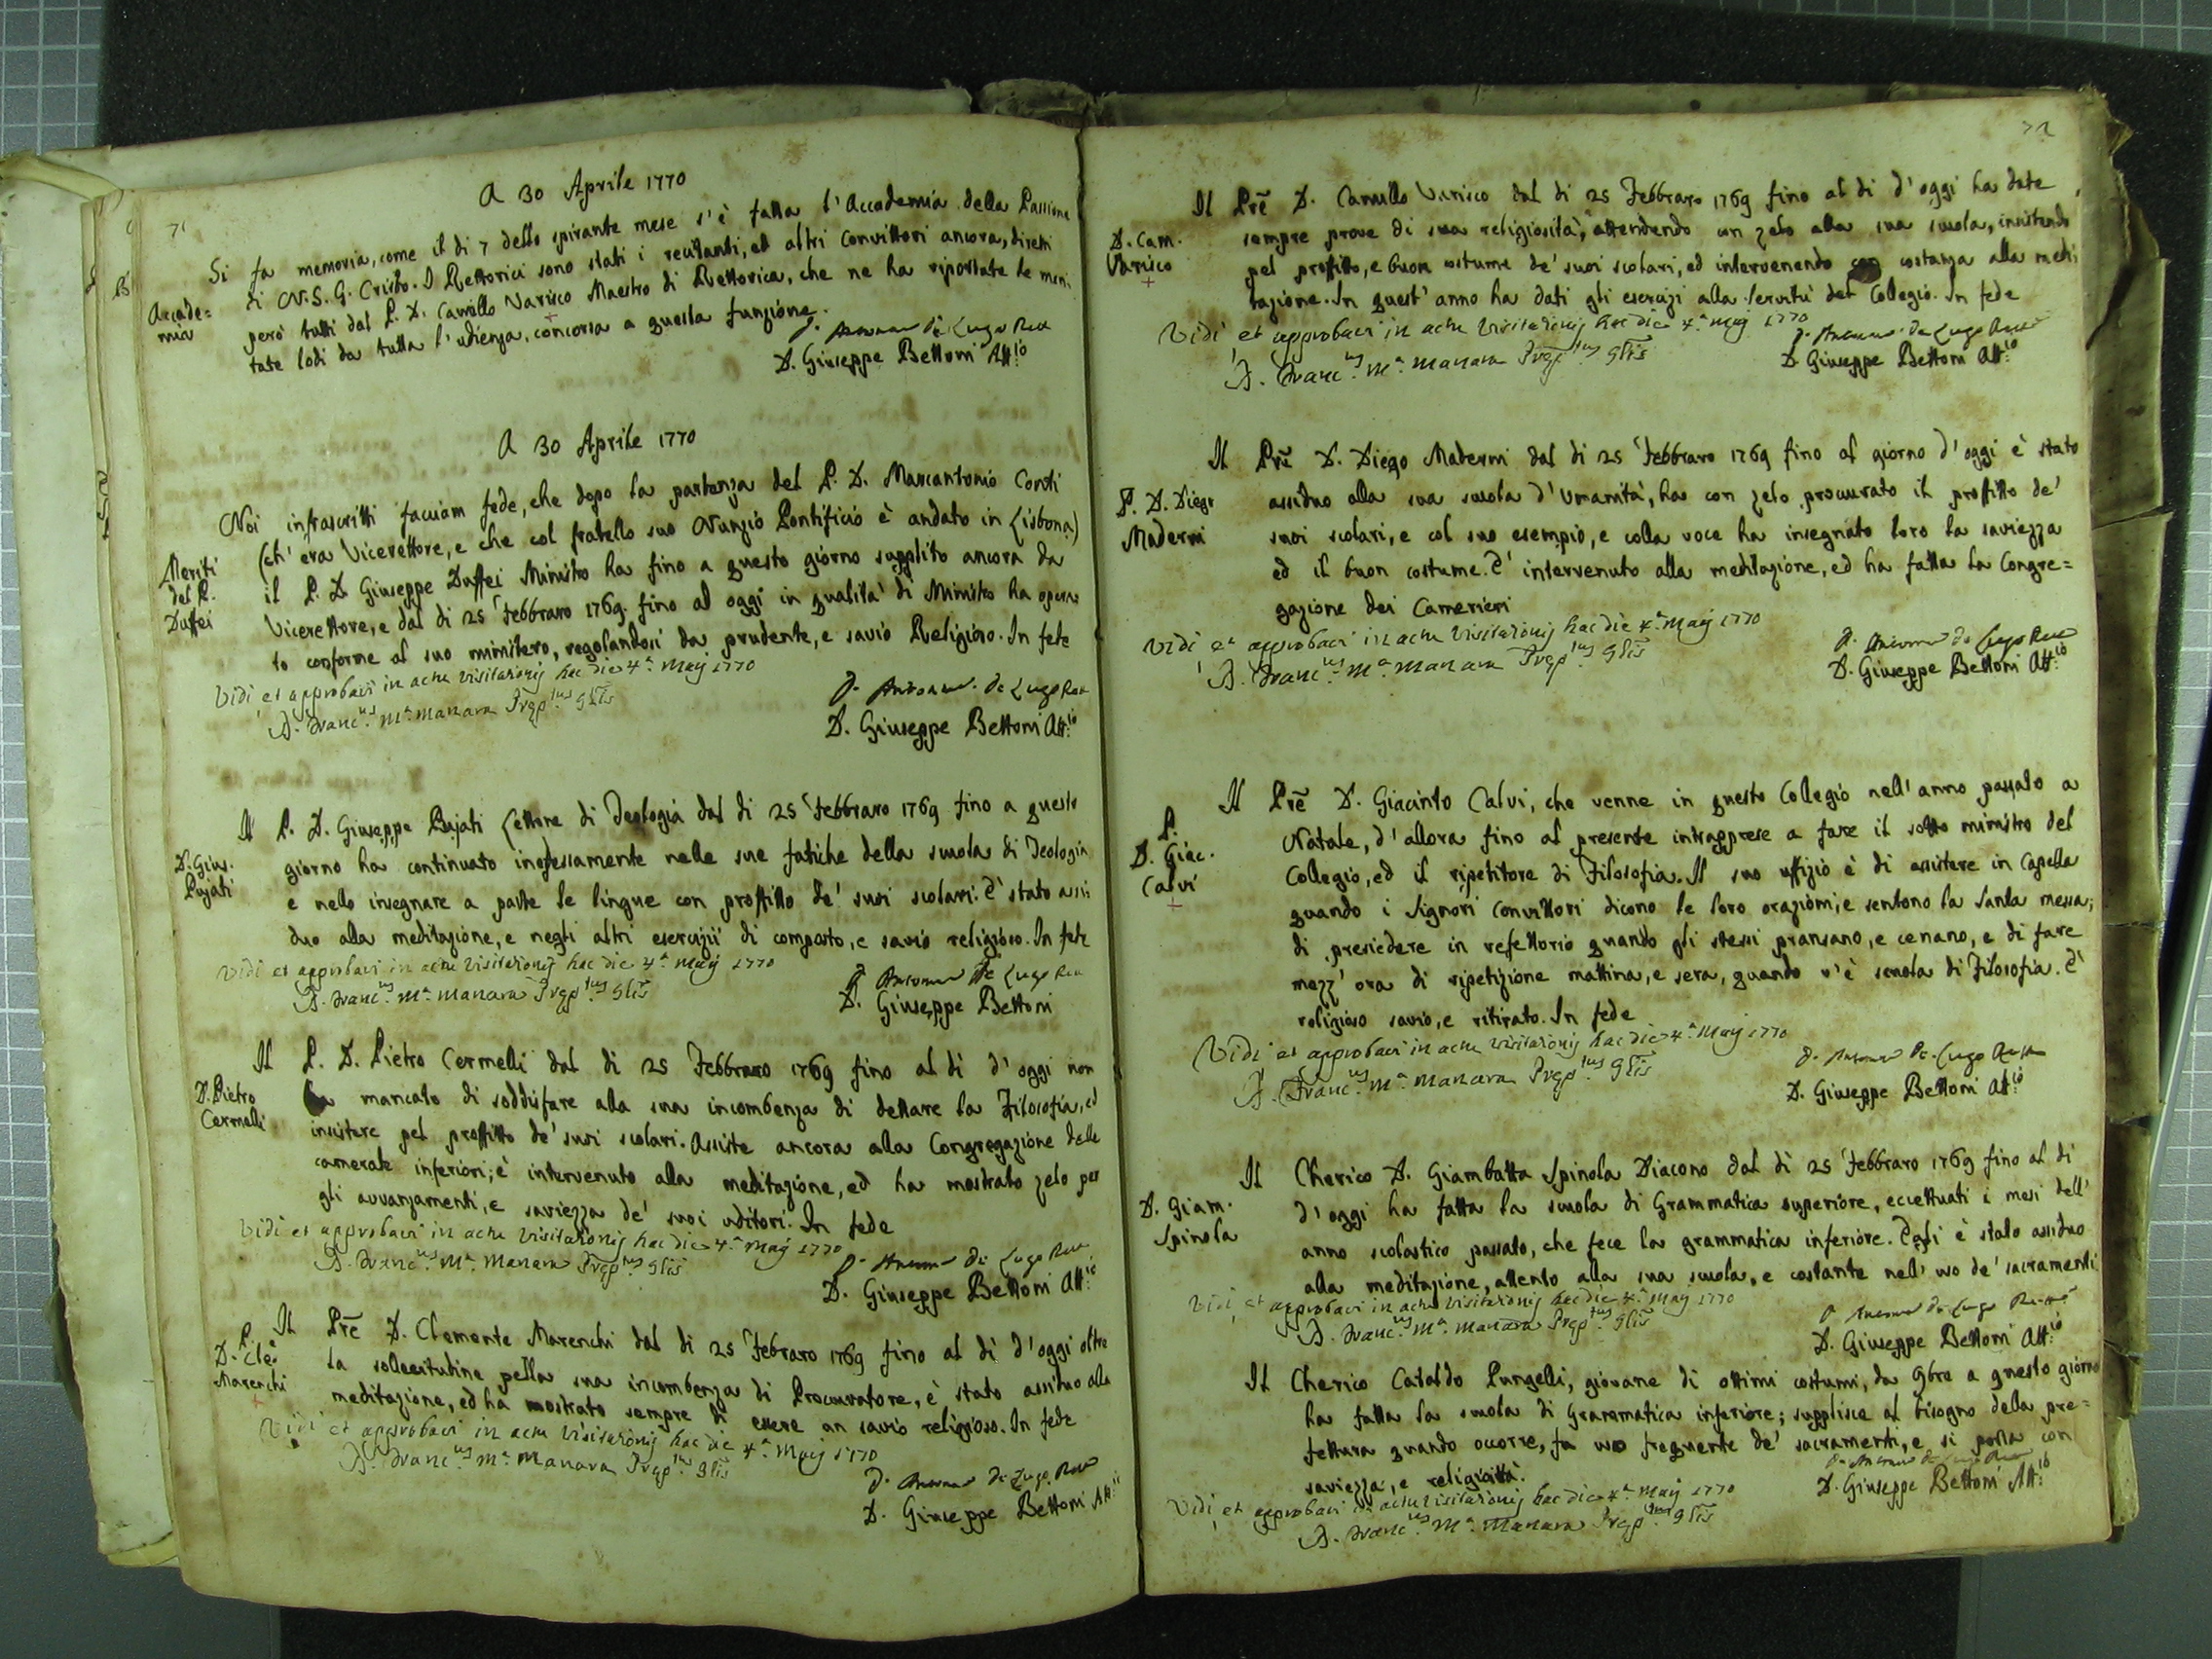 71
A 30 Aprile 1770
Accade=
mia
Si fa memoria, come il di 7 dello spirante mese s'è fatta l'Accademia della Passione
di N.S.G. Cristo. I Rettorici sono stati i recitanti, ed altri Convittori ancora, diretti
però tutti dal P. D. Camillo Varisco Maestro di Rettorica, che ne ha riportate le meri-
tate lodi da tutta l'udienza, concorsa a questa funzione.
D. Antonio de Lugo Rett
D. Giuseppe Bettoni Att.io
A 30 Aprile 1770
Meriti
del P.
Duffei
Noi infrascritti facciam fede, che dopo la partenza del P. D. Marcantonio Conti
(ch'era Vicerettore, e che col fratello suo Nunzio Pontificio è andato in Lisbona)
il P. D. Giuseppe Duffei Ministro ha fino a questo giorno supplito ancora da
Vicerettore, e dal di 25 Febbraro 1769. fino ad oggi in qualità di Ministro ha opera
to conforme al suo ministero, regolandosi da prudente, e savio Religioso. In fede
Vidi et approbavi in actu visitationis hac die 4.a Maij 1770
D. Franc.us M.a Manara Pręp.tus Glis
D. Antonio de Lugo Rett
D. Giuseppe Bettoni Att.io
D. Gius.
Pujati
Il P. D. Giuseppe Pujati Lettore di Teologia dal di 25 Febbraro 1769 fino a questo
giorno ha continuato indefessamente nelle sue fatiche della scuola di Teologia
e nello insegnare a parte le lingue con proffitto de' suoi scolari. È stato assi
duo alla meditazione, e negli altri esercizii di composto, e savio religioso. In fede
Vidi et approbavi in actu visitationis hac die 4.a Maij 1770
D. Franc.us M.a Manara Pręp.tus Glis
D. Antonio de Lugo Rett
D. Giuseppe Bettoni
D. Pietro
Cermelli
Il P. D. Pietro Cermelli dal di 25 Febbraro 1769 fino al di d'oggi non
ha mancato di soddisfare alla sua incombenza di dettare la Filosofia, ed
insistere pel proffitto de' suoi scolari. Assiste ancora alla Congregazione delle
camerate inferiori; è intervenuto alla meditazione, ed ha mostrato zelo per
gli avvanzamenti, e saviezza de' suoi uditori. In fede
Vidi et approbavi in actu visitationis hac die 4.a Maij 1770
D. Franc.us M.a Manara Pręp.tus Glis
D. Antonio de Lugo Rett
D. Giuseppe Bettoni Att.io
P.
D. Cle.
Marenchi
Il Pre D. Clemente Marenchi dal di 25 Febraro 1769 fino al di d'oggi oltre
la sollecitudine pella sua incombenza di Procuratore, è stato assiduo alla
meditazione, ed ha mostrato sempre di essere un savio religioso. In fede
Vidi et approbavi in actu visitationis hac die 4.a Maij 1770
D. Franc.us M.a Manara Pręp.tus Glis
D. Antonio de Lugo Rett
D. Giuseppe Bettoni Att.io
72
D. Cam.
Varisco
Il Pre D. Camillo Varisco dal di 25 Febbraro 1769 fino al di d'oggi ha date
sempre prove di sua religiosità, attendendo con zelo alla sua scuola, insistendo
pel proffitto, e buon costume de' suoi scolari, ed intervenendo con costanza alla medi
tazione. In quest'anno ha dati gli esercizi alla servitù del Collegio. In fede
Vidi et approbavi in actu visitationis hac die 4.a Maij 1770
D. Franc.us M.a Manara Pręp.tus Glis
D. Antonio de Lugo Rett
D. Giuseppe Bettoni Att.io
P. D. Diego
Maderni
Il Pre D. Diego Maderni dal di 25 Febbraro 1769 fino al giorno d'oggi è stato
assiduo alla sua scuola d'Umanità, ha con zelo procurato il proffitto de'
suoi scolari, e col suo esempio, e colla voce ha insegnato loro la saviezza
ed il buon costume. È intervenuto alla meditazione, ed ha fatta la Congre=
gazione dei Camerieri
Vidi et approbavi in actu visitationis hac die 4.a Maij 1770
D. Franc.us M.a Manara Pręp.tus Glis
D. Antonio de Lugo Rett
D. Giuseppe Bettoni Att.io
P.
D. Giac.
Calvi
Il Pre D. Giacinto Calvi, che venne in questo Collegio nell'anno passato a
Natale, d'allora fino al presente intrapprese a fare il sotto ministro del
Collegio, ed il ripetitore di Filosofia. Il suo uffizio è di assistere in Capella
quando i Signori Convittori dicono le loro orazioni, e sentono la santa messa;
di presiedere in refettorio quando gli stessi pransano, e cenano, e di fare
mezz'ora di ripetizione mattina, e sera, quando v'è scuola di Filosofia. È
religioso savio, e ritirato. In fede
Vidi et approbavi in actu visitationis hac die 4.a Maij 1770
D. Franc.us M.a Manara Pręp.tus Glis
D. Antonio de Lugo Rett
D. Giuseppe Bettoni Att.io
D. Giam.
Spinola
Il Cherico D. Giambatta Spinola Diacono dal di 25 Febbraro 1769 fino al di
d'oggi ha fatta la scuola di Grammatica superiore, eccettuati i mesi dell'
anno scolastico passato, che fece la grammatica inferiore. Egli è stato assiduo
alla meditazione, attento alla sua scuola, e costante nell'uso de' sacramenti
Vidi et approbavi in actu visitationis hac die 4.a Maij 1770
D. Franc.us M.a Manara Pręp.tus Glis
D. Antonio de Lugo Rett
D. Giuseppe Bettoni Att.io
Il Cherico Cataldo Pungelli, giovane di ottimi costumi, da 9bre a questo giorno
ha fatta la scuola di Grammatica inferiore; supplisce al bisogno della pre=
fettura quando occorre, fa uso frequente de' sacramenti, e si porta con
saviezza, e religiosità.
Vidi et approbavi in actu visitationis hac die 4.a Maij 1770
D. Franc.us M.a Manara Pręp.tus Glis
D. Antonio de Lugo Rett
D. Giuseppe Bettoni Att.io